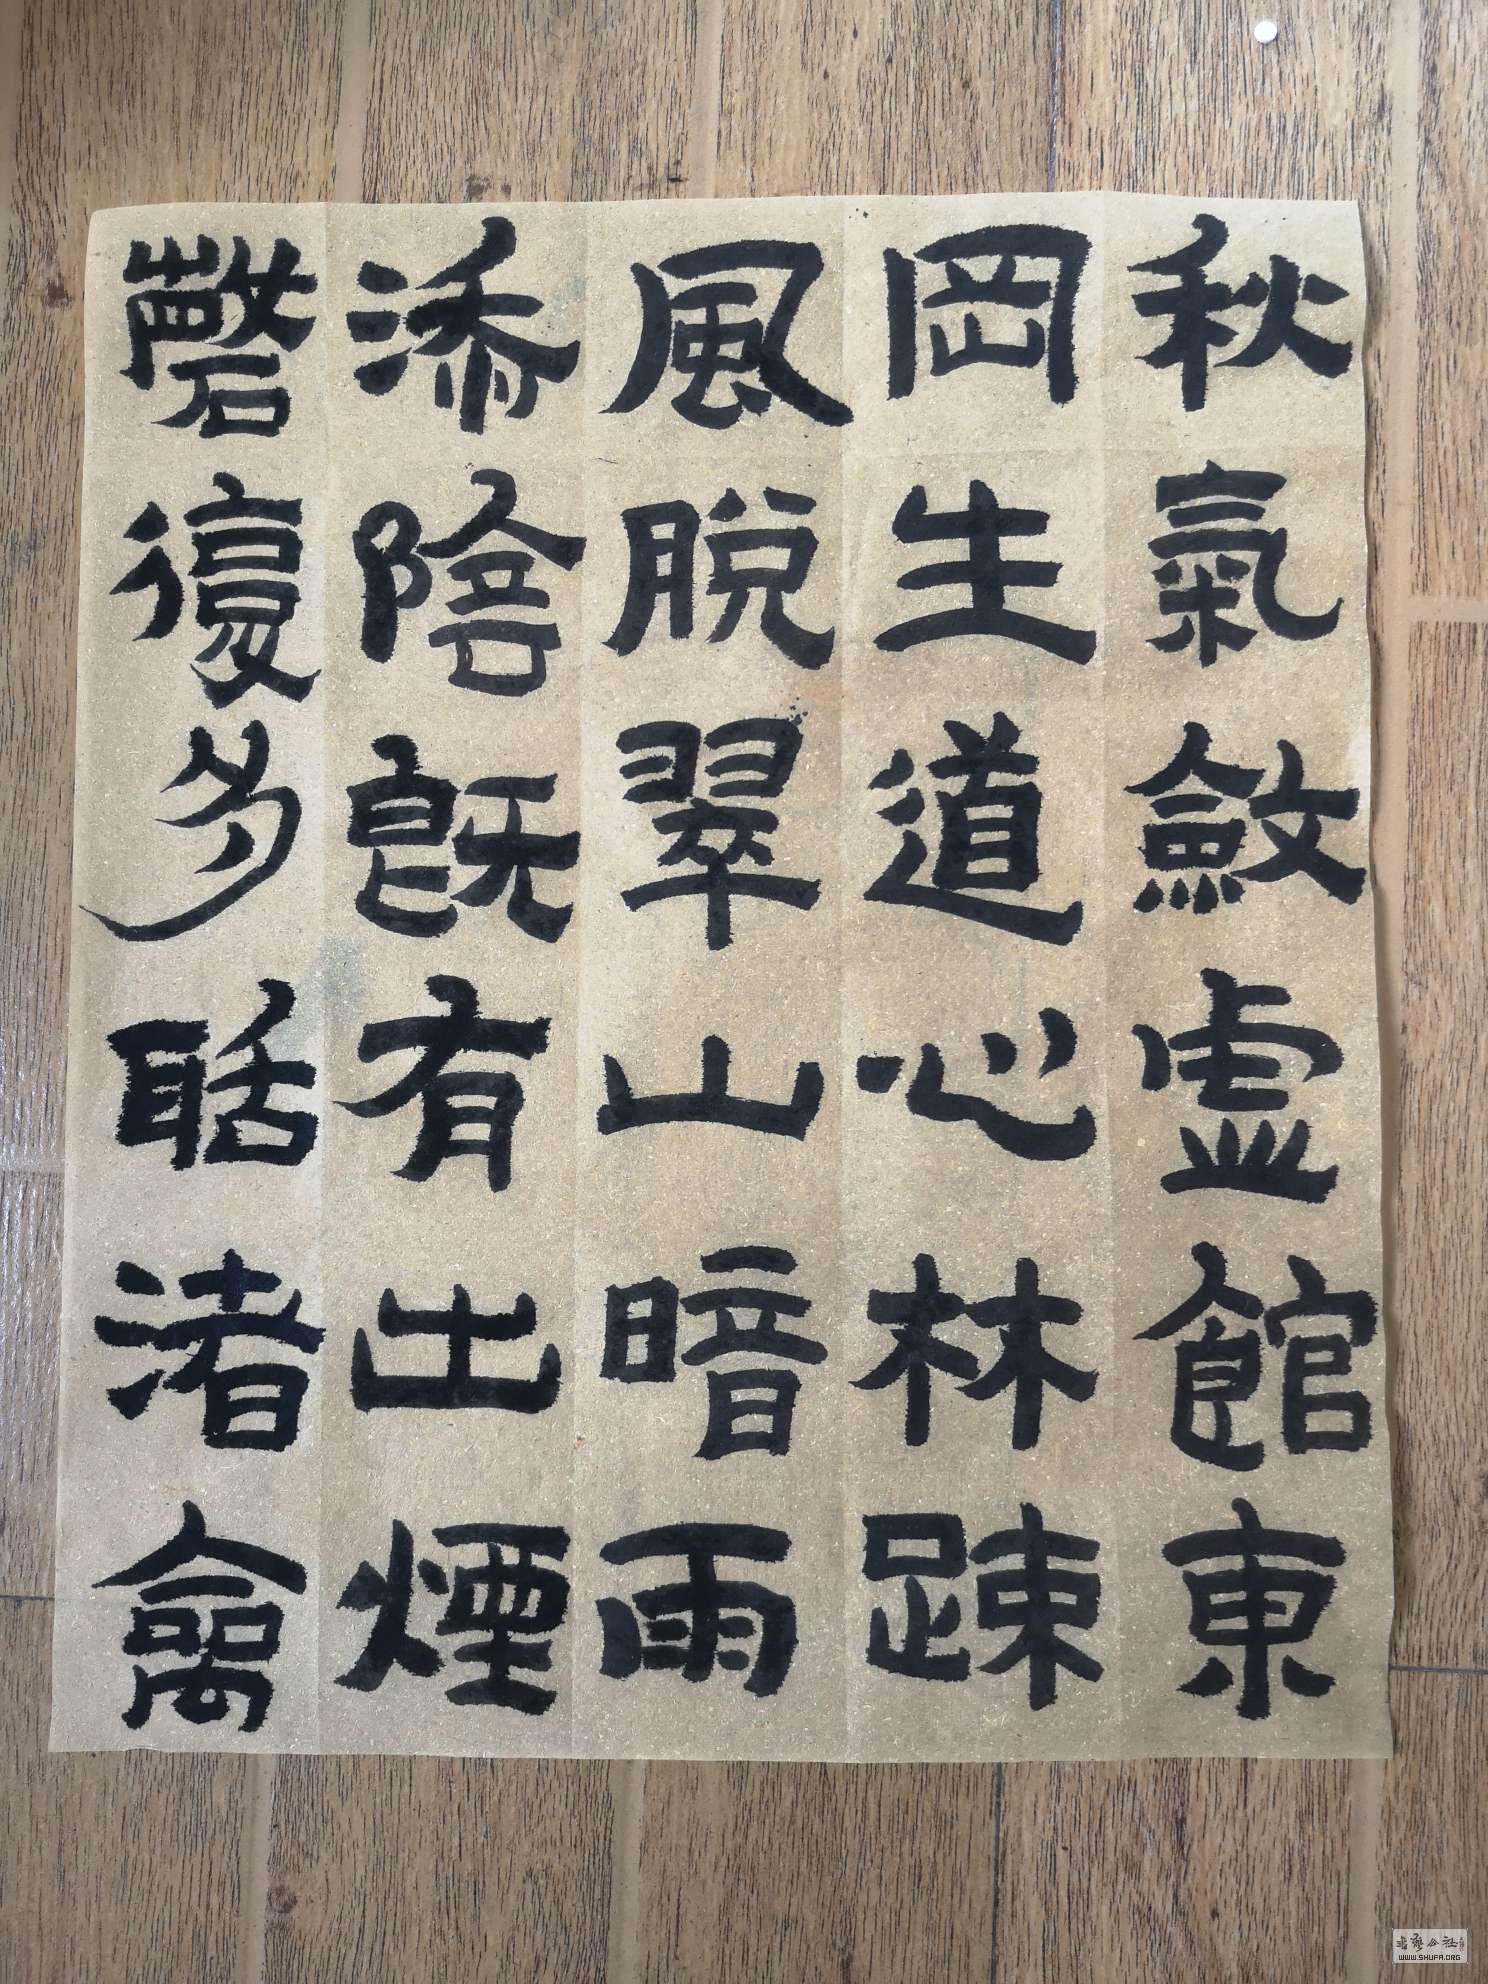 秋氣斂虛館東
岡生道心林踈
風脫翠山暗雨
添陰既有出煙
磬復多聒渚禽
WWW.SHUFA.ORG